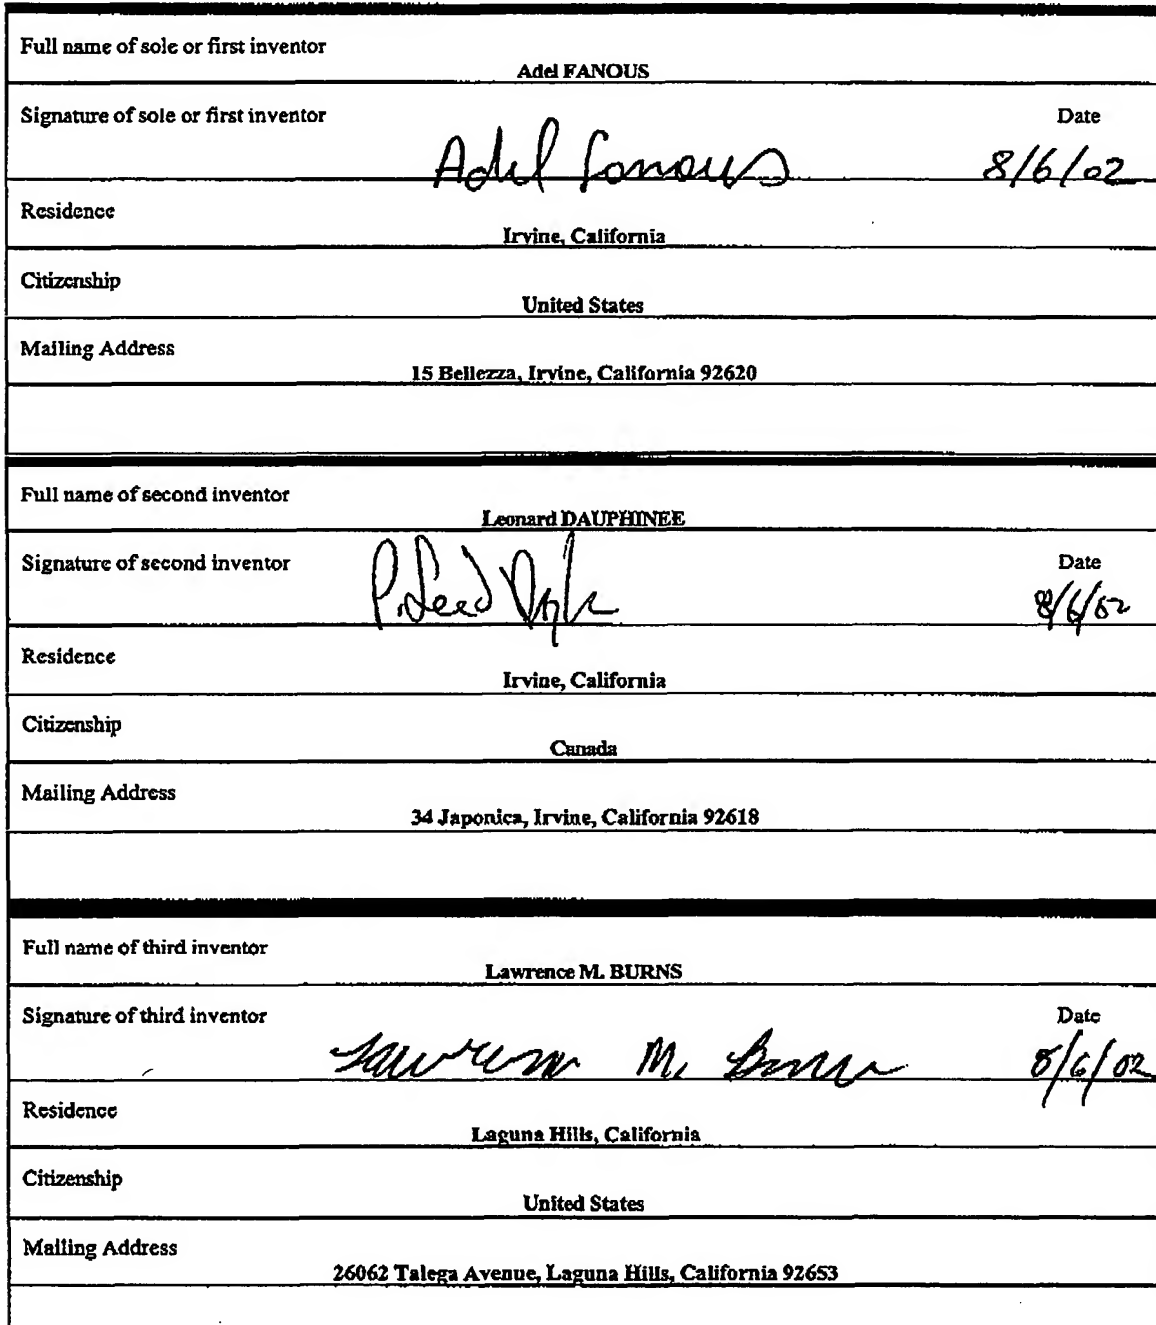 Full name of sole or first inventor
Adel FANOUS
Signature of sole or first inventor Date
Adel Fanous 8/6/02
Residence
Irvine, California
Citizenship
United States
Mailing Address
15 Bellezza, Irvine, California 92620
Full name of second inventor
Leonard DAUPHINEE
Signature of second inventor Date
8/6/02
Residence
Irvine, California
Citizenship
Canada
Mailing Address
34 Japonica, Irvine, California 92618
Full name of third inventor
Lawrence M. BURNS
Signature of third inventor Date
Lawrence M. Burns 8/6/02
Residence
Laguna Hills, California
Citizenship
United States
Mailing Address
26062 Talega Avenue, Laguna Hills, California 92653